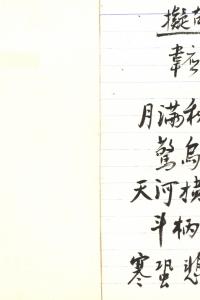 擬
韋應
月滿秋
驚烏
天河橫
斗柄
寒蛩悲